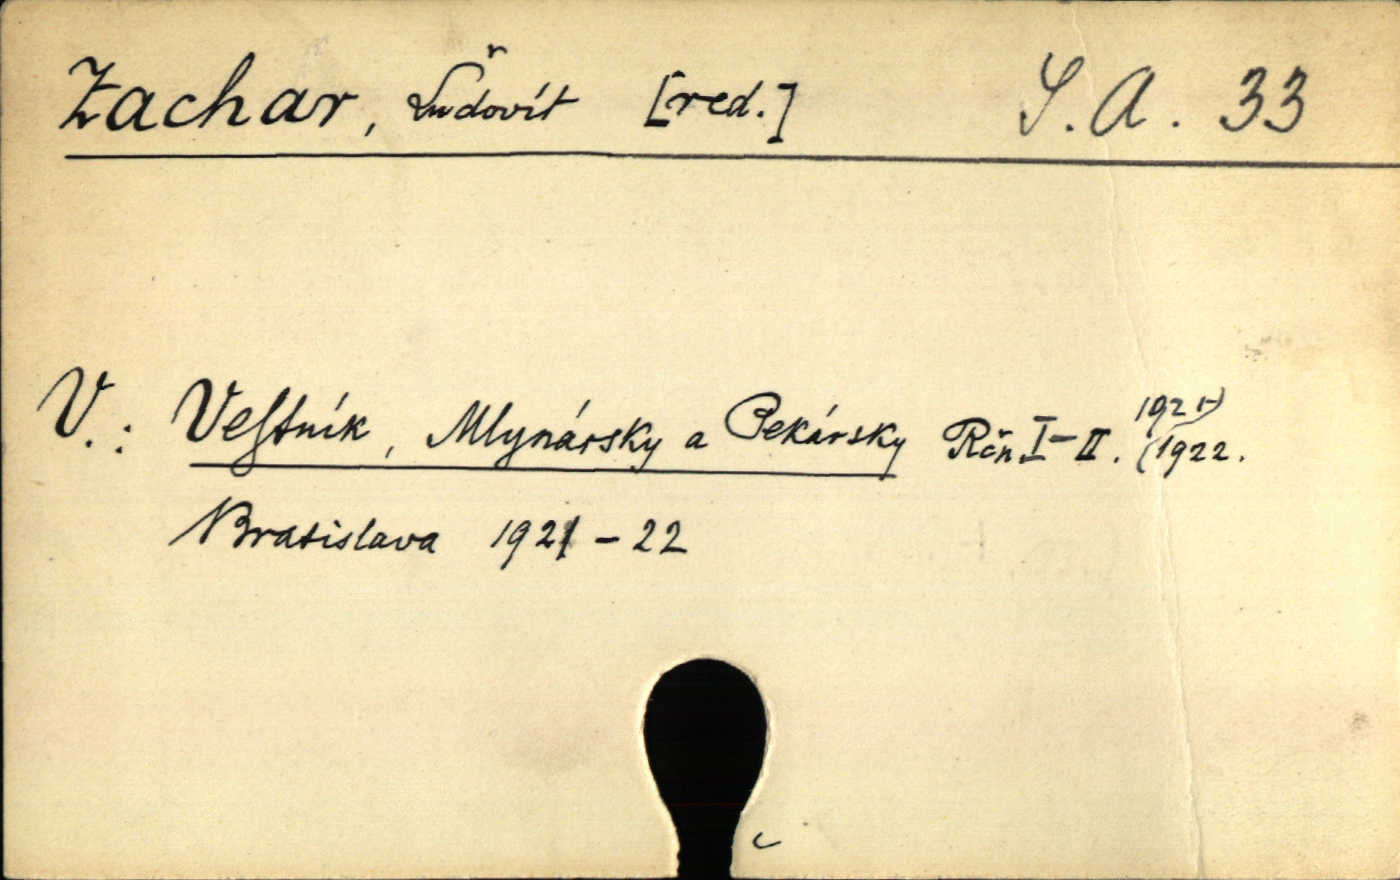 Zachar, Ľudovít [red.] S. A. 33
V.: Vestník, Mlynársky a Pekársky Rčn I-II. (1921-)
(1922.
Bratislava 1921-22